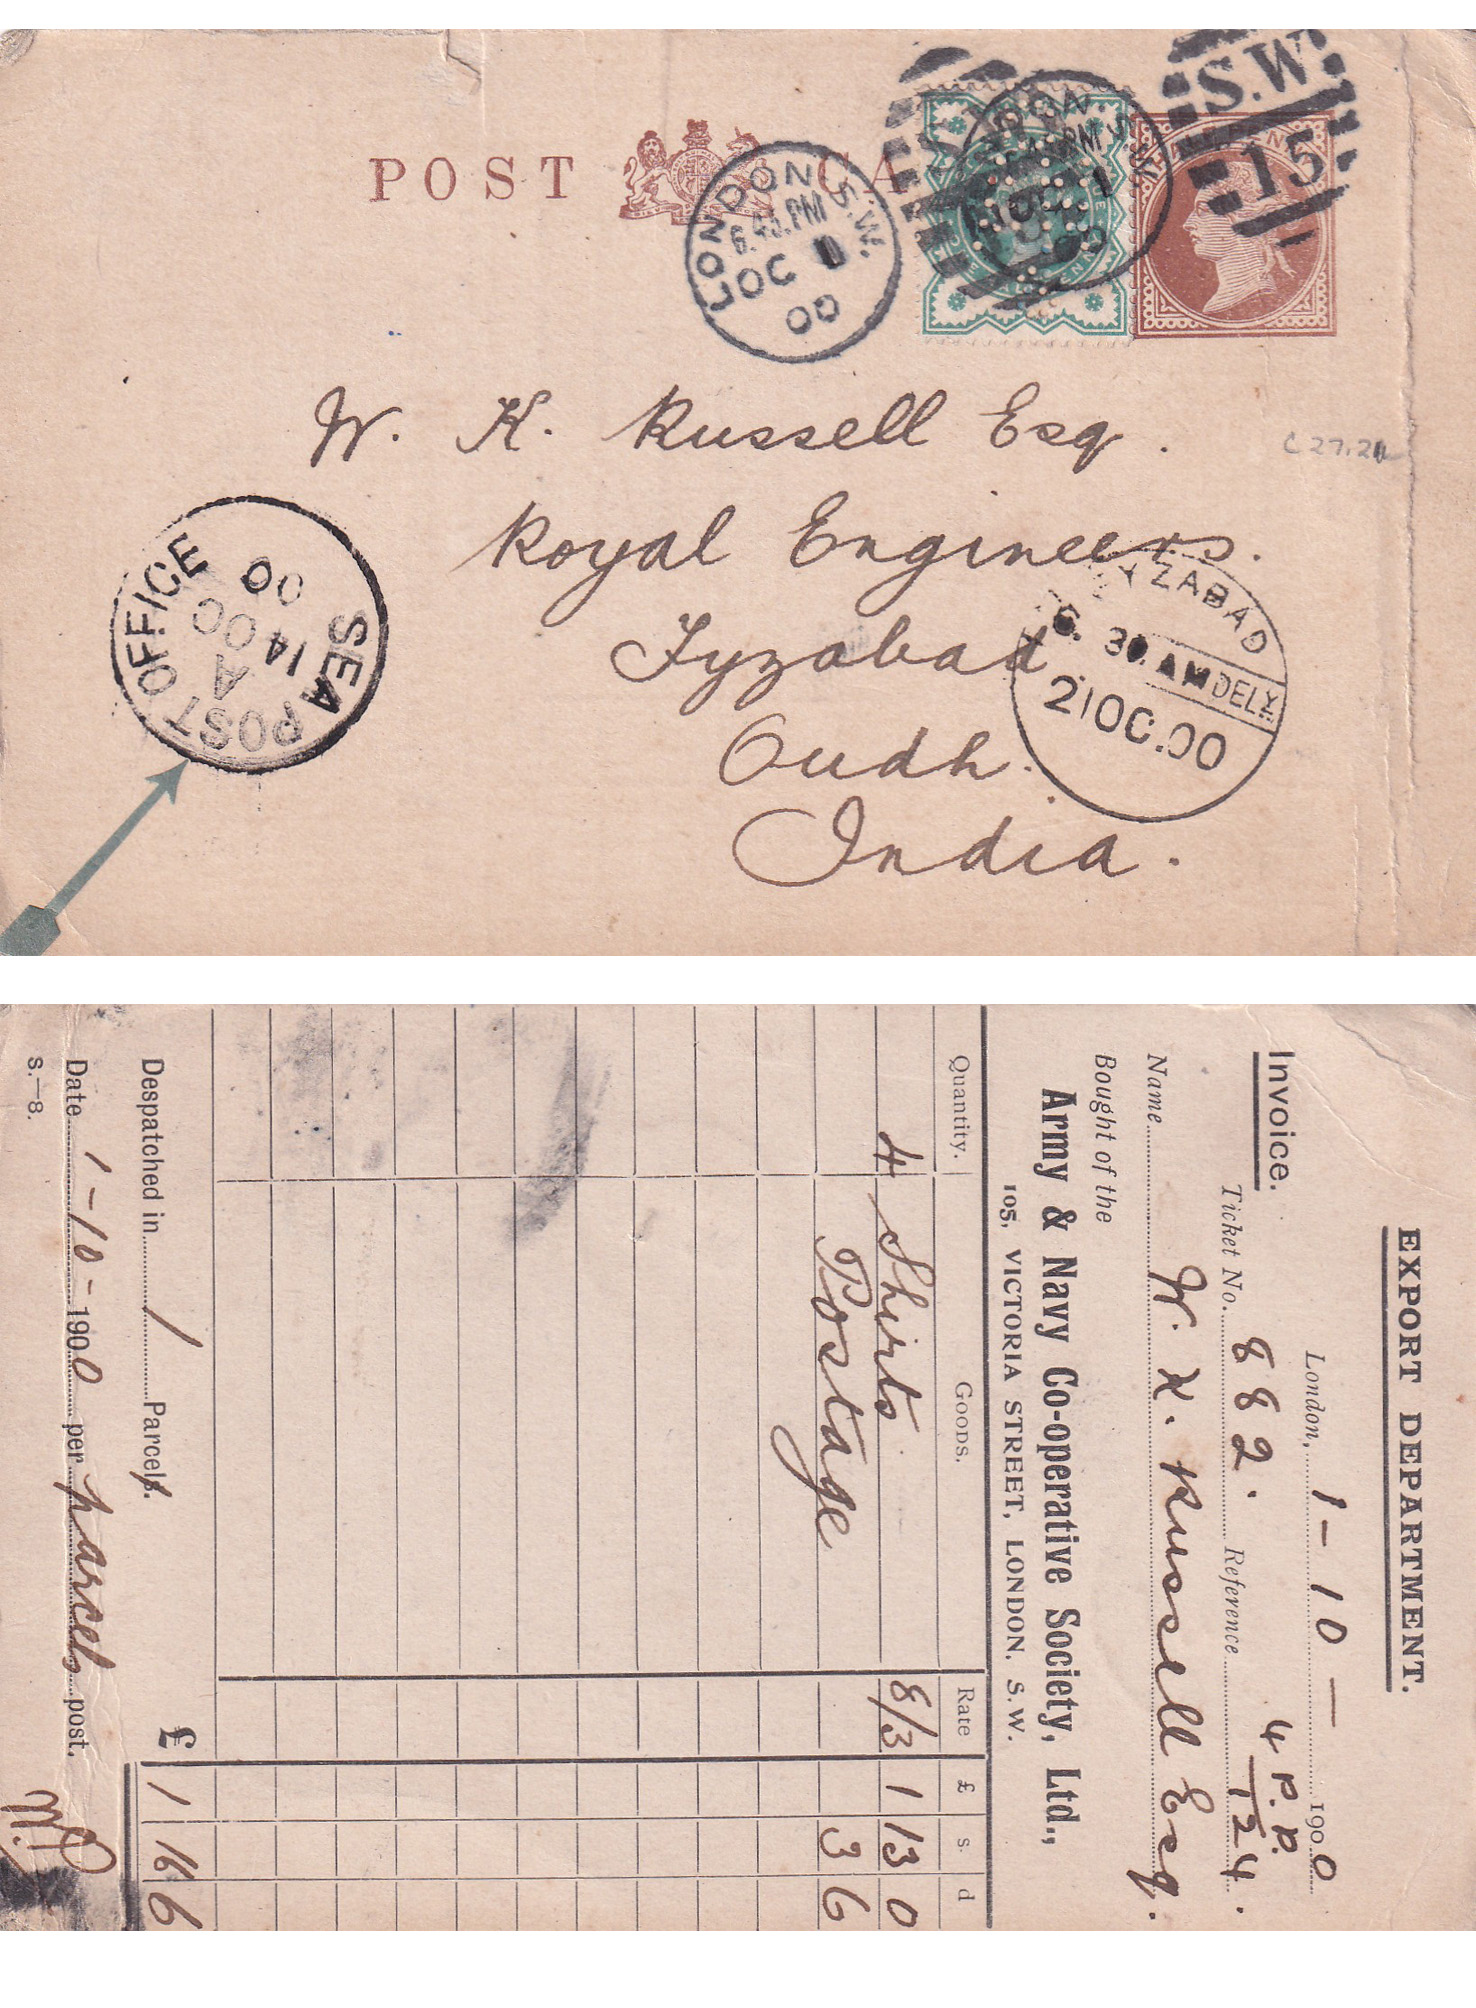 POST CA
LONDON S.W.
6.45.PM
OC 1
00
S.W.
15
W. K. Russell Esq.
Royal Engineers.
Fyzabad
Oudh.
India.
C27.2
SEA POST OFFICE
A
14 OC
00
YZABAD
6.30.AM DELY.
21OC.00
EXPORT DEPARTMENT.
London, 1-10- 1900
Invoice.
4 P.P.
Ticket No. 882. Reference 124.
Name W. K. Russell Esq.
Bought of the
Army & Navy Co-operative Society, Ltd.,
105, VICTORIA STREET, LONDON. S.W.
Quantity. GOODS. Rate £ s. d
4 Shirts 8/3 1 13 0
Postage 3 6
£ 1 16 6
Despatched in 1 Parcels.
Date 1-10-1900 per parcels post.
S.—8.